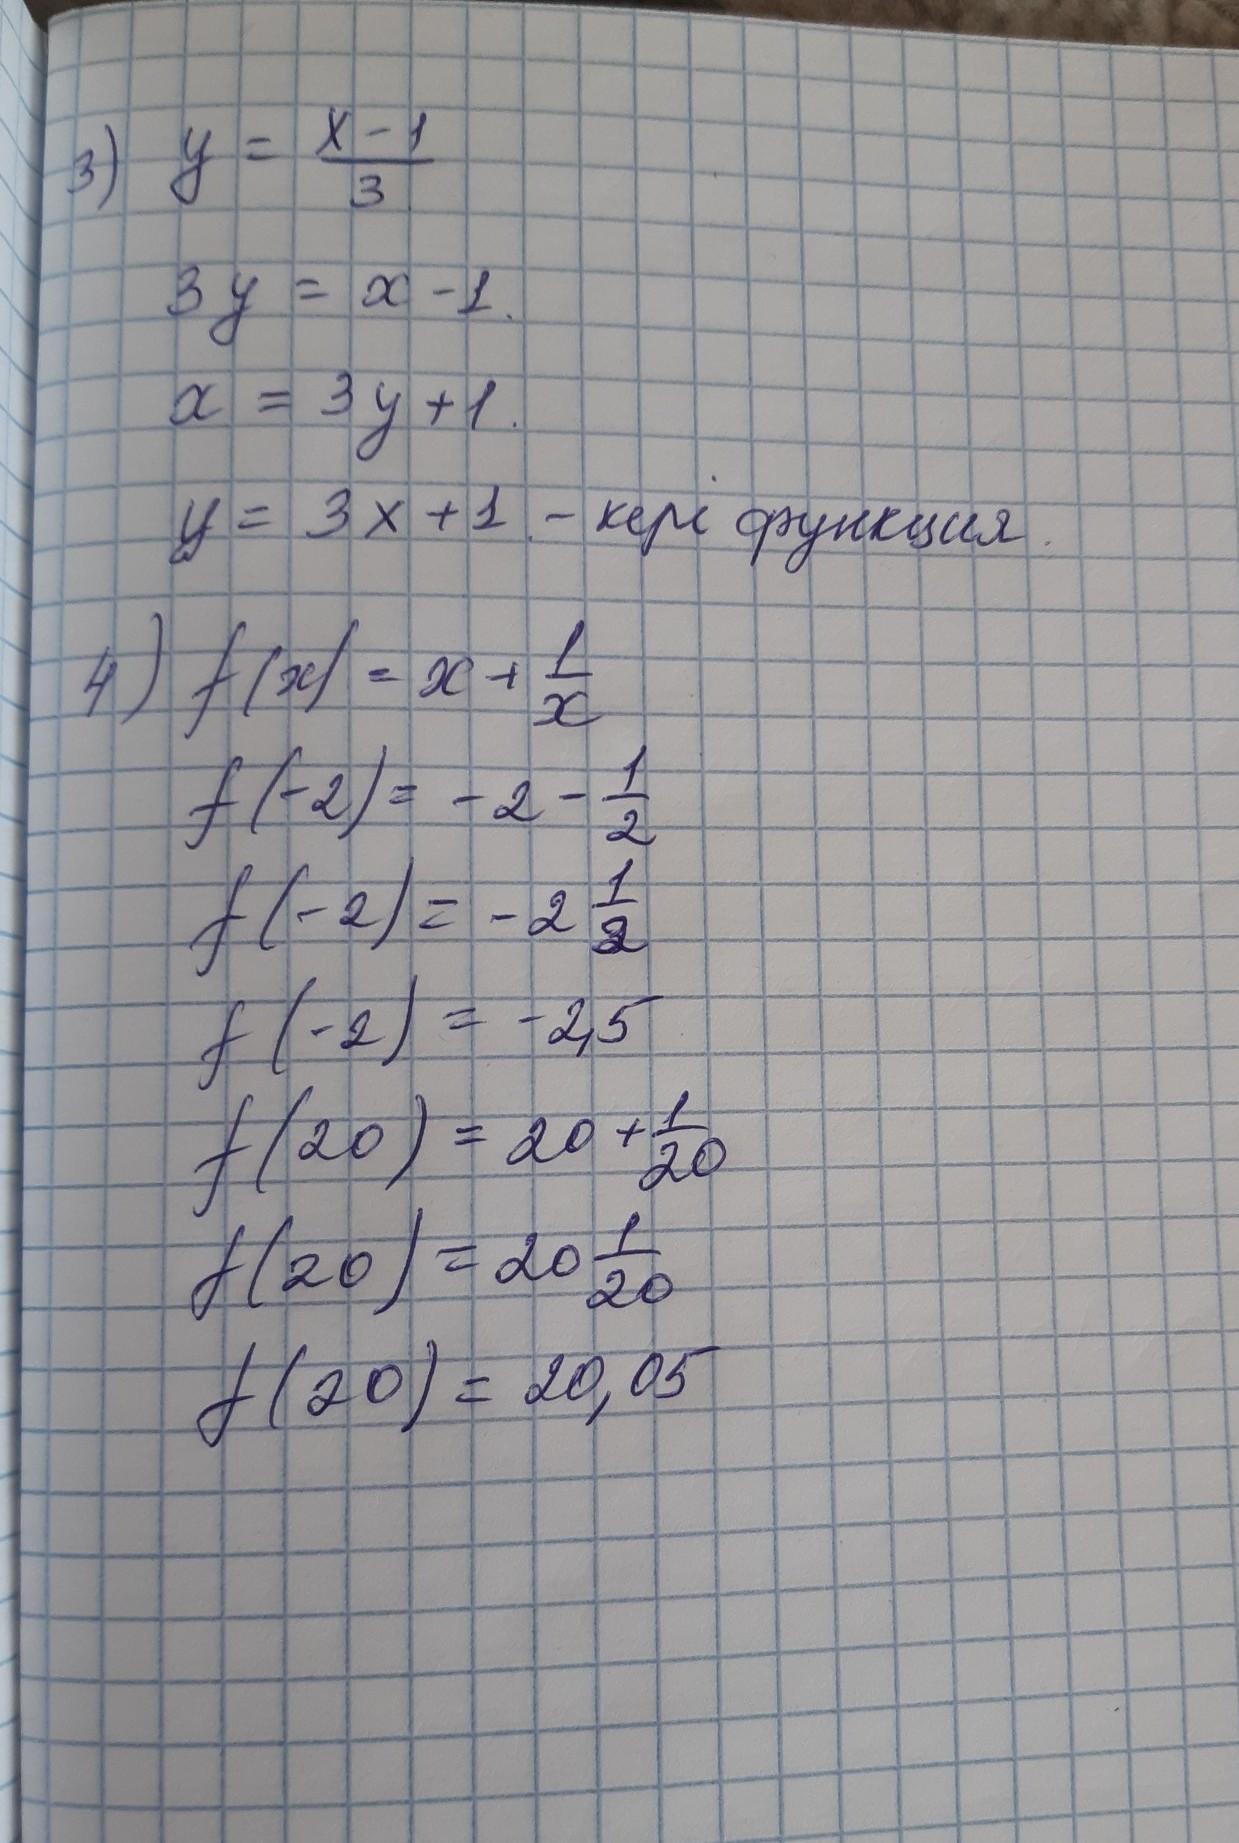 3) y = (x-1)/3
3y = x-1.
x = 3y+1.
y = 3x+1 - кері функция.
4) f(x) = x + 1/x
f(-2) = -2 - 1/2
f(-2) = -2 1/2
f(-2) = -2,5
f(20) = 20 + 1/20
f(20) = 20 1/20
f(20) = 20,05